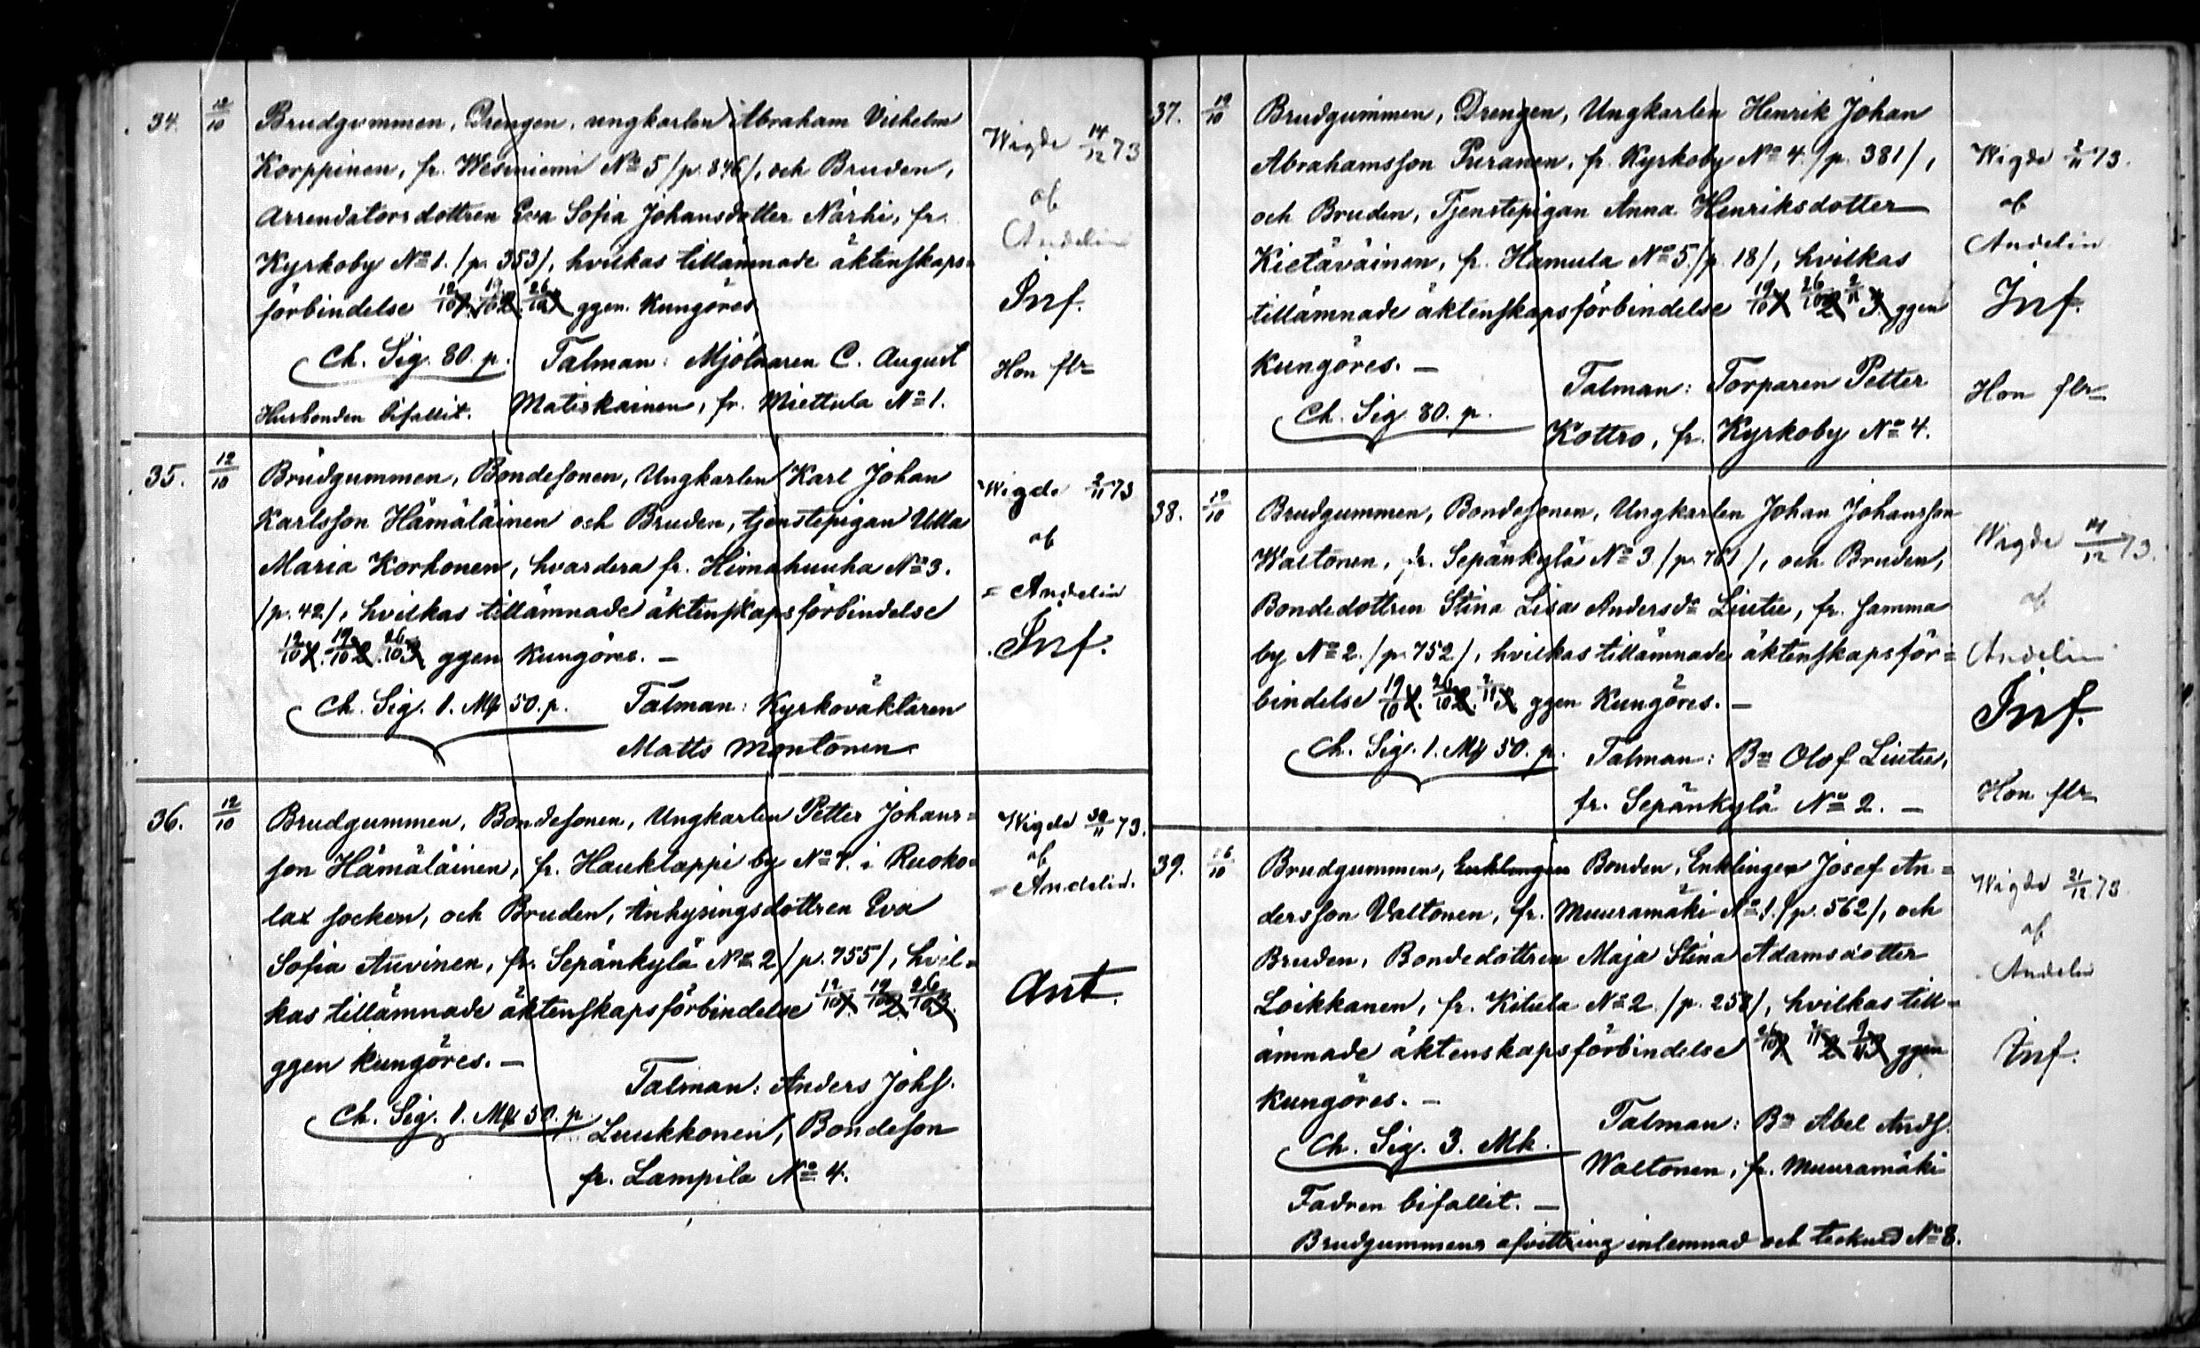 34. 12/10 Brudgummen, Drengen, ungkarlen Abraham Vilhelm
Korppinen, fr. Wesiniemi No 5 /p. 846/, och Bruden,
Arrendators dottren Eva Sofia Johansdotter Närhi, fr.
Kyrkoby No 1. /p. 353/, hvilkas tillämnade äktenskaps=
förbindelse 12/10 1. 19/10 2. 26/10 3 ggen. Kungöres
Ch. Sig. 80. p. Talman: Mjölnaren C. August
Husbonden bifallit. Matiskainen, fr. Miettula No 1.
Wigde 14/12 73
af
Andelin
Inf.
Hon flr
35. 12/10 Brudgummen, Bondesonen, Ungkarlen Karl Johan
Karlsson Hämäläinen och Bruden, tjenstepigan Ulla
Maria Korhonen, hvardera fr. Himahuuha No 3.
/p. 42/, hvilkas tillämnade äktenskapsförbindelse
12/10 1. 19/10 2. 26/10 3 ggen Kungöres. —
Ch. Sig. 1. Mk 50. p. Talman: Kyrkoväktaren
Matts Montonen
Wigde 2/11 73
af
= Andelin
Inf.
36. 12/10 Brudgummen, Bondesonen, Ungkarlen Petter Johans=
son Hämäläinen, fr. Hauklappi by No 7. i Ruoko=
lax socken, och Bruden, Inhysingsdottren Eva
Sofia Auvinen, fr. Sepänkylä No 2 /p. 755/, hvil=
kas tillämnade äktenskapsförbindelse 12/10 1. 19/10 2. 26/10 3.
ggen kungöres. —
Talman: Anders Johs.
Ch. Sig. 1. Mk 50. p. Luukkonen, Bondeson
fr. Lampila No 4.
Wigde 30/11 73.
af
= Andelin.
Ant.
37. 19/10 Brudgummen, Drengen, Ungkarlen Henrik Johan
Abrahamsson Puranen, fr. Kyrkoby No 4. /p. 381/,
och Bruden, Tjenstepigan Anna Henriksdotter
Kietäväinen, fr. Hamula No 5. /p. 18/, hvilkas
tillämnade äktenskapsförbindelse 19/10 1 26/10 2 2/11 3. ggen
kungöres. —
Talman: Torparen Petter
Ch. Sig 80. p. Kottro, fr. Kyrkoby No 4.
Wigde 2/11 73.
af
Andelin
Inf.
Hon flr
38. 19/10 Brudgummen, Bondesonen, Ungkarlen Johan Johansson
Waltonen, fr. Sepänkylä No 3. /p. 761/, och Bruden,
Bondedottren Stina Lisa Andersdr Liutu, fr. samma
by No 2. /p. 752/, hvilkas tillämnade äktenskapsför=
bindelse 19/10 1. 26/10 2. 2/11 3 ggen Kungöres. —
Ch. Sig. 1. Mk 50. p. Talman: Bn Olof Liutu,
fr. Sepänkylä No 2. —
Wigde 14/12 73.
af
Andelin
Inf.
Hon flr
39. 26/10 Brudgummen, Enklingen Bonden, Enklingen Josef An=
dersson Valtonen, fr. Muuramäki No 1. /p. 562/, och
Bruden, Bondedottren Maja Stina Adamsdotter
Loikkanen, fr. Kitula No 2 /p. 258/, hvilkas till=
ämnade äktenskapsförbindelse 26/10 1 2/11 2 9/11 3 ggen
kungöres. —
Talman: Bn Abel Ands.
Ch. Sig. 3. Mk. Waltonen, fr. Muuramäki
Fadren bifallit. —
Brudgummens afvittring inlemnad och tecknad No 8.
Wigde 21/12 73
af
Andelin
Inf.